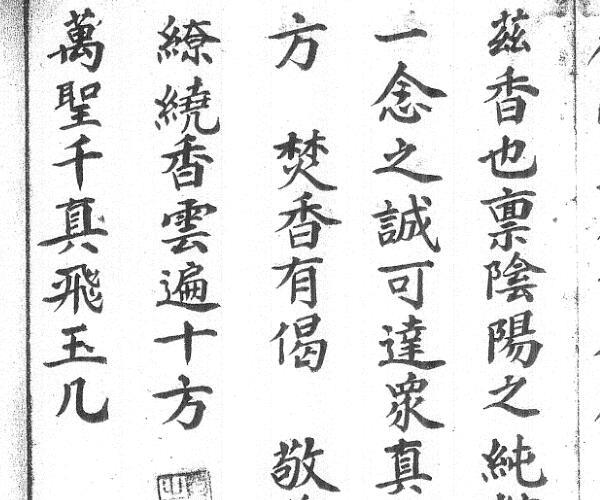 茲香也禀陰陽之純
一念之誠可達衆真
方　焚香有偈　敬
繚繞香雲遍十方
萬聖千真飛玉几